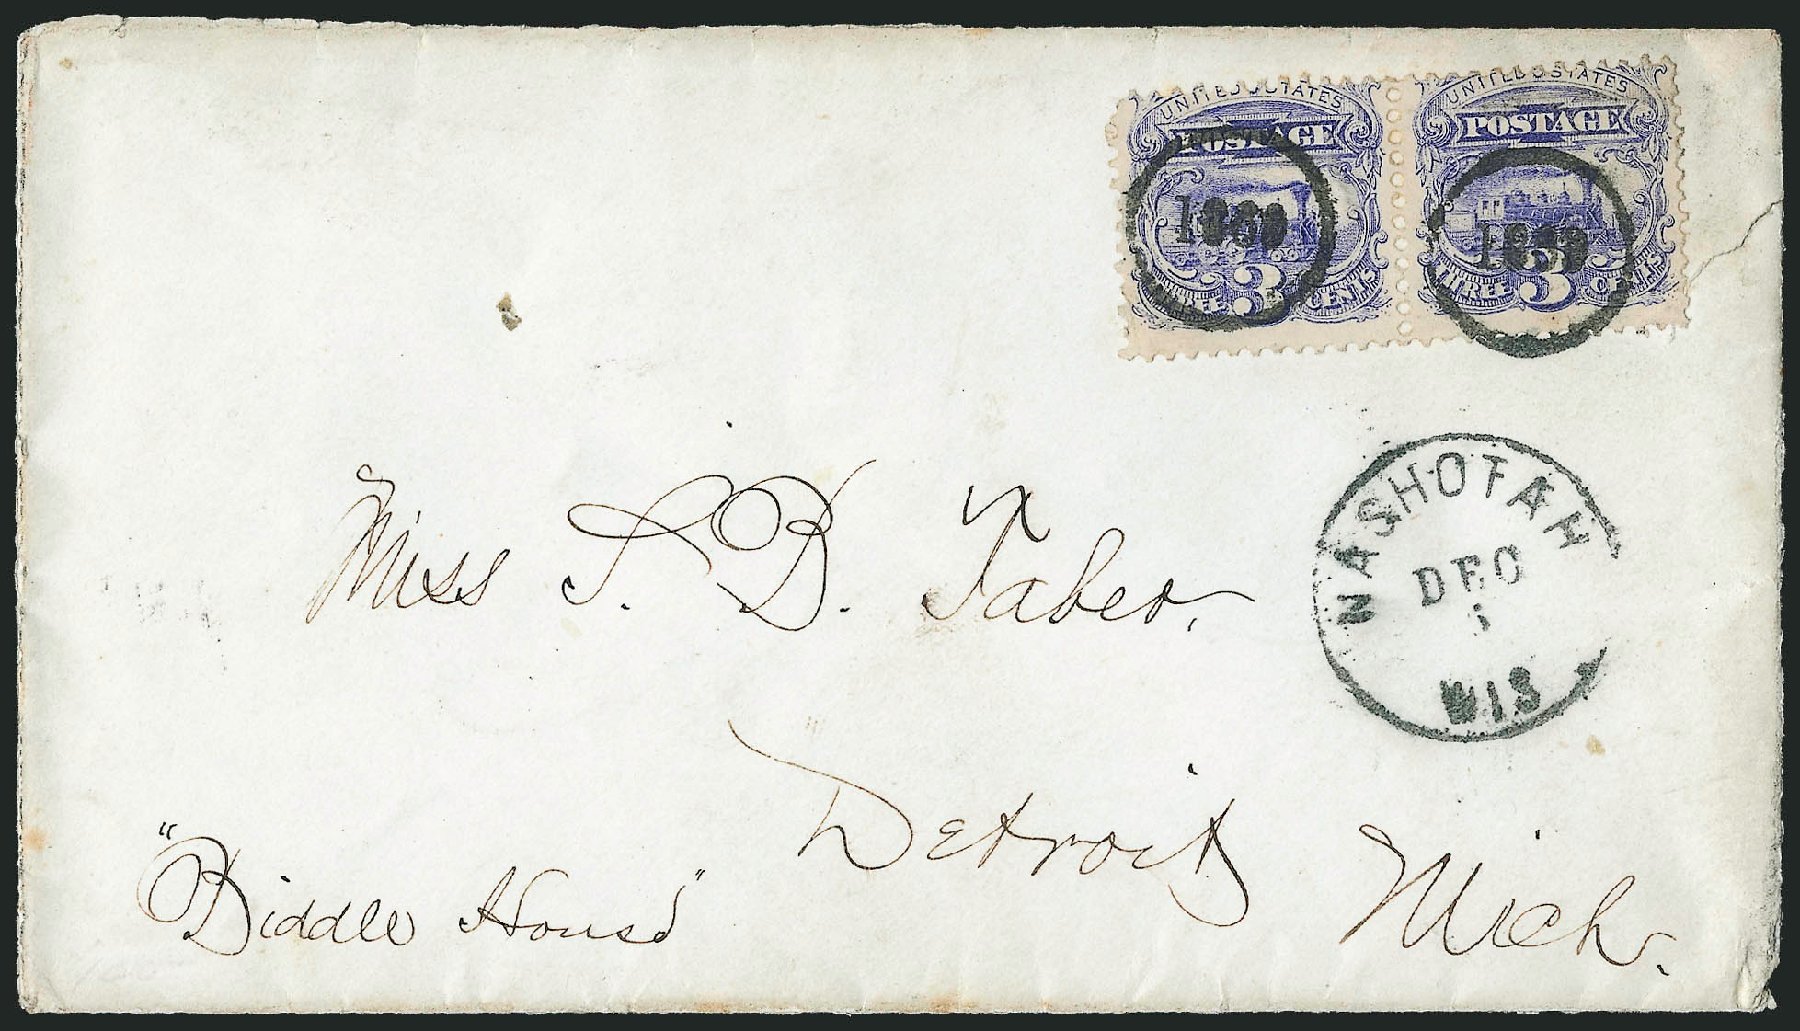 UNITED STATES UNITED STATES
POSTAGE POSTAGE
1869 1869
THREE 3 CENTS THREE 3 CENTS
NASHOTAH
DEC
WIS
Miss S. B. Taber,
Detroit Mich.
"Biddle House"